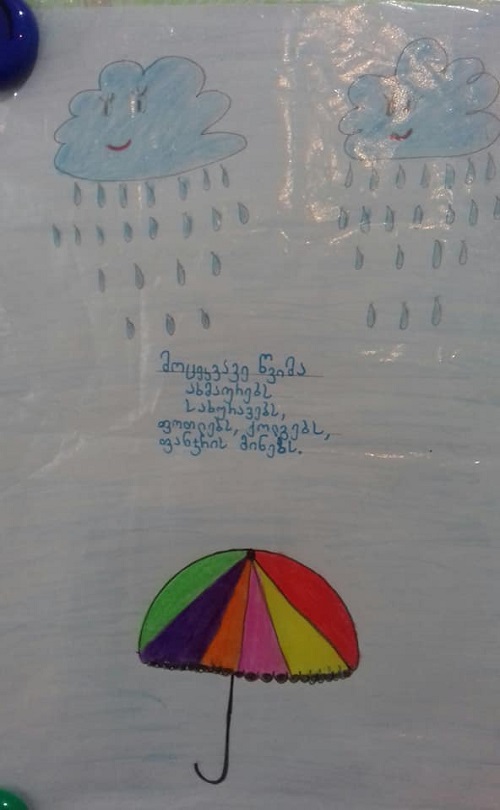 მოცეკვავე წვიმა
ახმაურებს
სახურავებს,
ფოთლებს, ქოლგებს,
ფანჯრის მინებს.